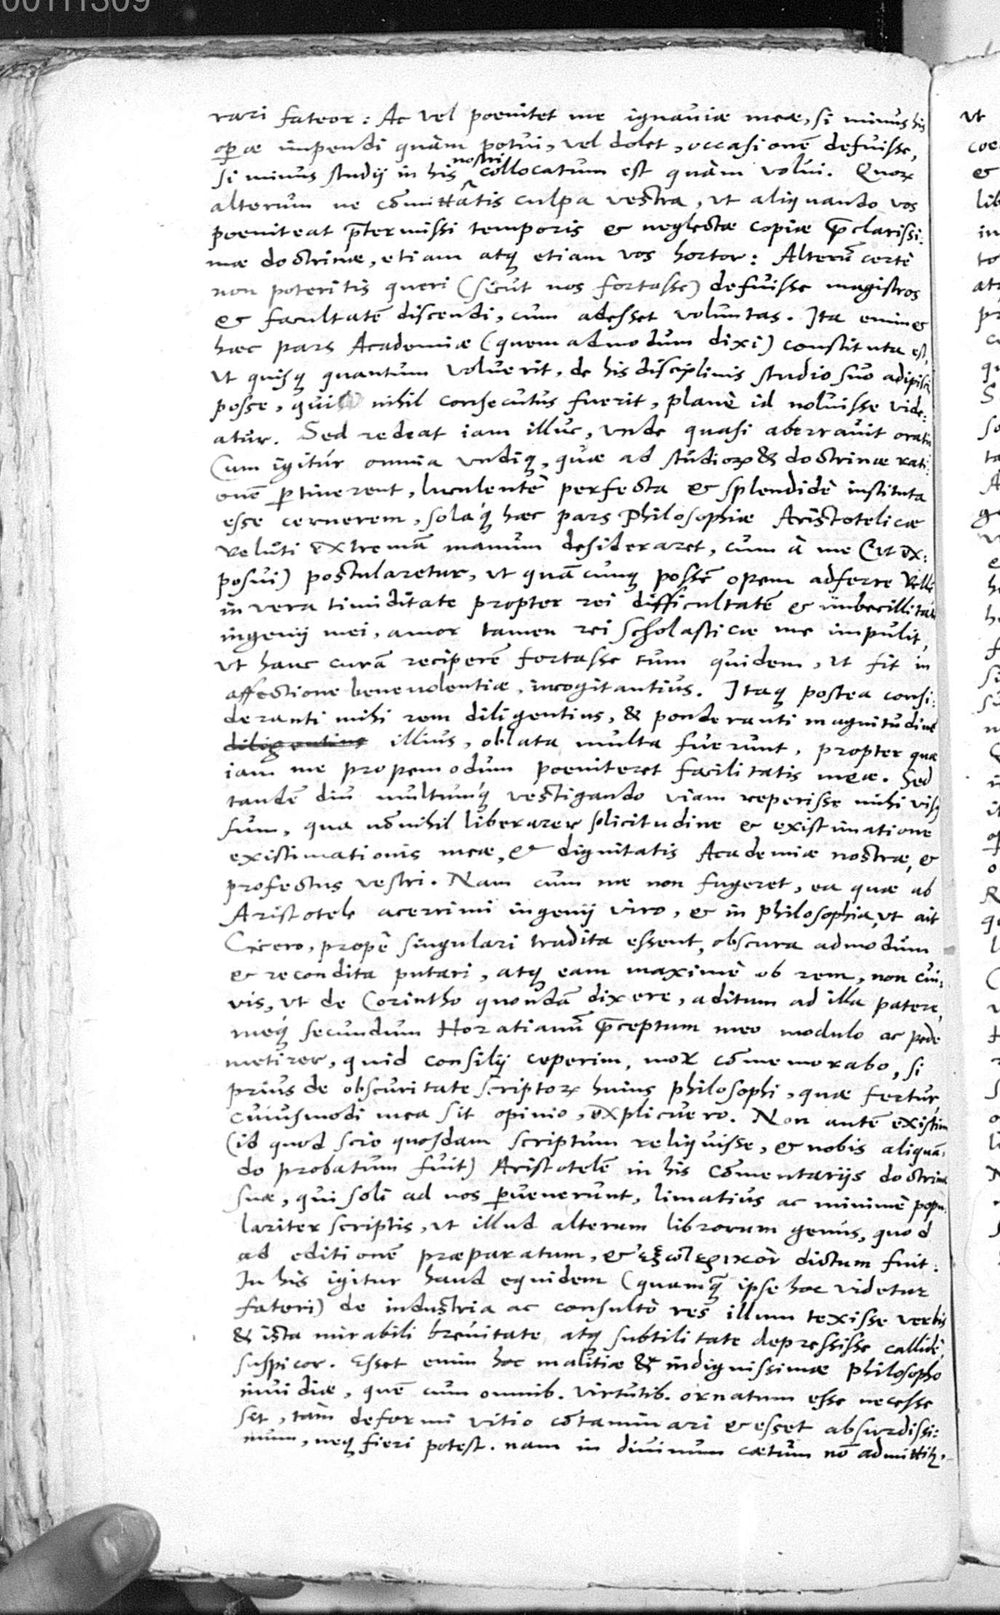 00111309
rari fateor: Ac vel poenitet me ignaviæ meæ, si minus his
operæ impendi quàm potui, vel dolet, occasionẽ defuisse,
si minus studij in his nostri collocatum est quàm volui. Quoꝝ
alterum ne cõmittatis culpa vestra, ut aliquando vos
poeniteat p̃termissi temporis & neglectæ copiæ p̃clarissi:
mæ doctrinæ, etiam atq; etiam vos hortor: Alterũ certè
non poteritis queri (sicut nos fortasse) defuisse magistros
& facultatẽ discendi, cum adesset voluntas. Ita enim &
hæc pars Academiæ (quemadmodum dixi) constituta est,
Ut quisq; quantum voluerit, de his disciplinis studio suo adipisci
posse, qui nihil consecutus fuerit, planè id noluisse vide:
atur. Sed redeat iam illuc, unde quasi aberravit oratio
Cum igitur omnia undiq;, quæ ad studioꝝ & doctrinæ rati:
onẽ ꝑtinerent, luculentè perfecta & splendidè instituta
esse cernerem, solaq́; hæc pars Philosophiæ Aristotelicæ
veluti extremã manum desideraret, cum à me (ut ex:
posui) postularetur, ut quãcunq; possẽ opem adferre Velle
in vera timiditate propter rei difficultatẽ & imbecillitatẽ
ingenij mei, amor tamen rei scholasticæ me impulit,
ut hanc curã reciperẽ fortasse tum quidem, ut fit in
affectione benevolentiæ, incogitantius. Itaq; postea consi:
deranti mihi rem diligentius, & ponderanti magnitudinẽ
diligentius illius, oblata multa fuerunt, propter quæ
iam me propemodum poeniteret facilitatis meæ. Sed
tandẽ diu multumq́; vestigando viam reperisse mihi visus
sum, qua nõnihil liberarer solicitudine & existimatione
existimationis meæ, & dignitatis Academiæ nostræ, &
profectus vestri. Nam cum me non fugeret, ea quæ ab
Aristotele acerrimi ingenij viro, & in philosophia, ut ait
Cicero, propè singulari tradita essent, obscura admodum
& recondita putari, atq; eam maximè ob rem, non cui:
vis, ut de Corintho quondã dixere, aditum ad illa patere,
meq́; secundum Horatianũ p̃ceptum meo modulo ac pede
metirer, quid consilij ceperim, mox cõmemorabo, si
prius de obscuritate scriptoꝝ huius philosophi, quæ fertur,
cuiusmodi mea sit opinio, explicuero. Non autẽ existim
(id quod scio quosdam scriptum reliquisse, & nobis aliquã:
do probatum fuit) Aristotelẽ in his Cõmentarijs doctrinæ
suæ, qui soli ad nos ꝑvenerunt, limatius ac minimè popu:
lariter scriptis, ut illud alterum librorum genus, quod
ad editionẽ præparatum, & ἐξωτερικὸν dictum fuit:
In his igitur haud equidem (quamq̃ ipse hoc videtur
fateri) de industria ac consultò res illum texisse verbis
& ista mirabili brevitate atq; subtilitate depressisse callidè,
suspicor. Esset enim hoc malitiæ & indignissimæ philosopho
invidiæ, quẽ cum omnib. virtutib. ornatum esse necesse
sit, tàm deformi vitio cõtaminari & esset absurdissi:
mum, neq; fieri potest. nam in divinum cætum nõ admittit̃,